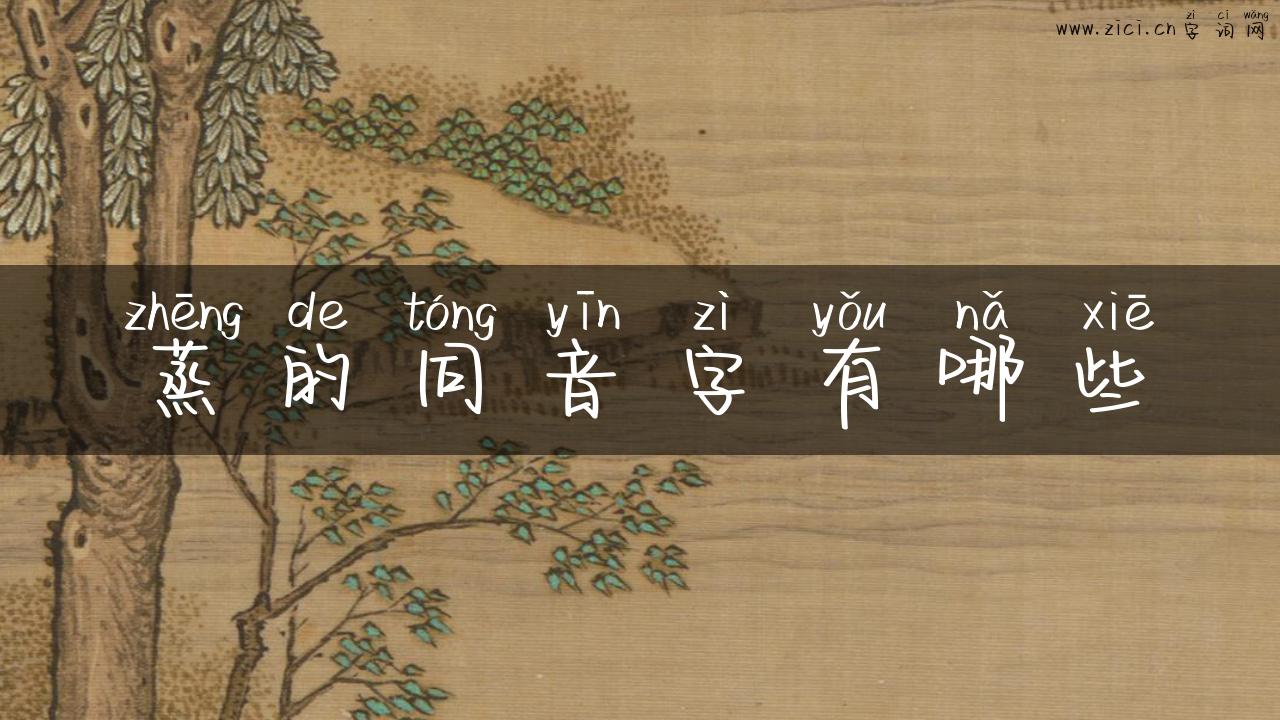 zì cí wǎng
www.zici.cn 字词网
zhēng de tóng yīn zì yǒu nǎ xiē
蒸的同音字有哪些